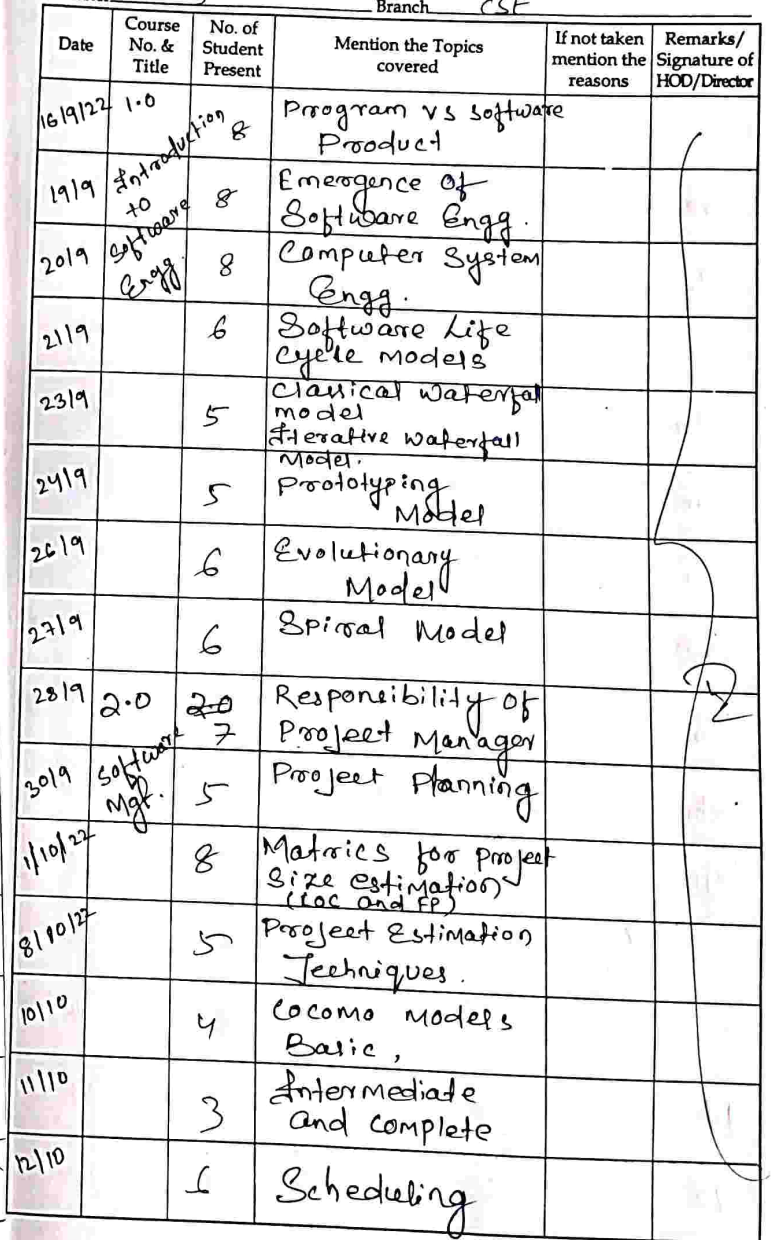 Branch CSE
Date
Course No. & Title
No. of Student Present
Mention the Topics covered
If not taken mention the reasons
Remarks/ Signature of HOD/Director
16/9/22 1.0 Introduction 8 Program vs software
Product
19/9 to 8 Emergence of
Software Engg.
20/9 Software Engg. 8 Computer System
Engg.
21/9 6 Software Life
Cycle Models
23/9 5 Classical Waterfal
model
Iterative waterfall
Model.
24/9 5 Prototyping
Model
26/9 6 Evolutionary
Model
27/9 6 Spiral Model
28/9 2.0 20 7 Responsibility of
Project Manager
30/9 Software Mgt. 5 Project Planning
1/10/22 8 Matrics for project
Size estimation
(LOC and FP)
8/10/22 5 Project Estimation
Techniques.
10/10 4 COCOMO Models
Basic,
11/10 3 Intermediate
and complete
12/10 Scheduling